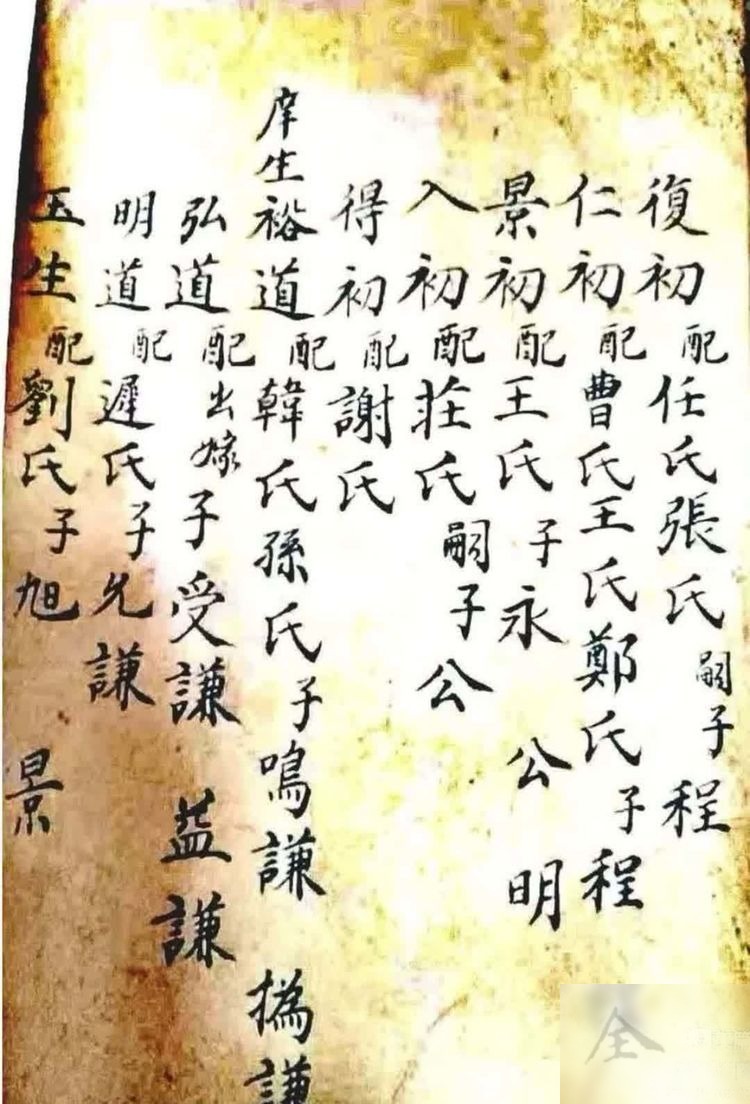 復初配任氏張氏嗣子程
仁初配曹氏王氏鄭氏子程
景初配王氏子永公明
入初配莊氏嗣子公
得初配謝氏
庠生裕道配韓氏孫氏子鳴謙撝謙
弘道配出嫁子受謙益謙
明道配遲氏子允謙
玉生配劉氏子旭景
全